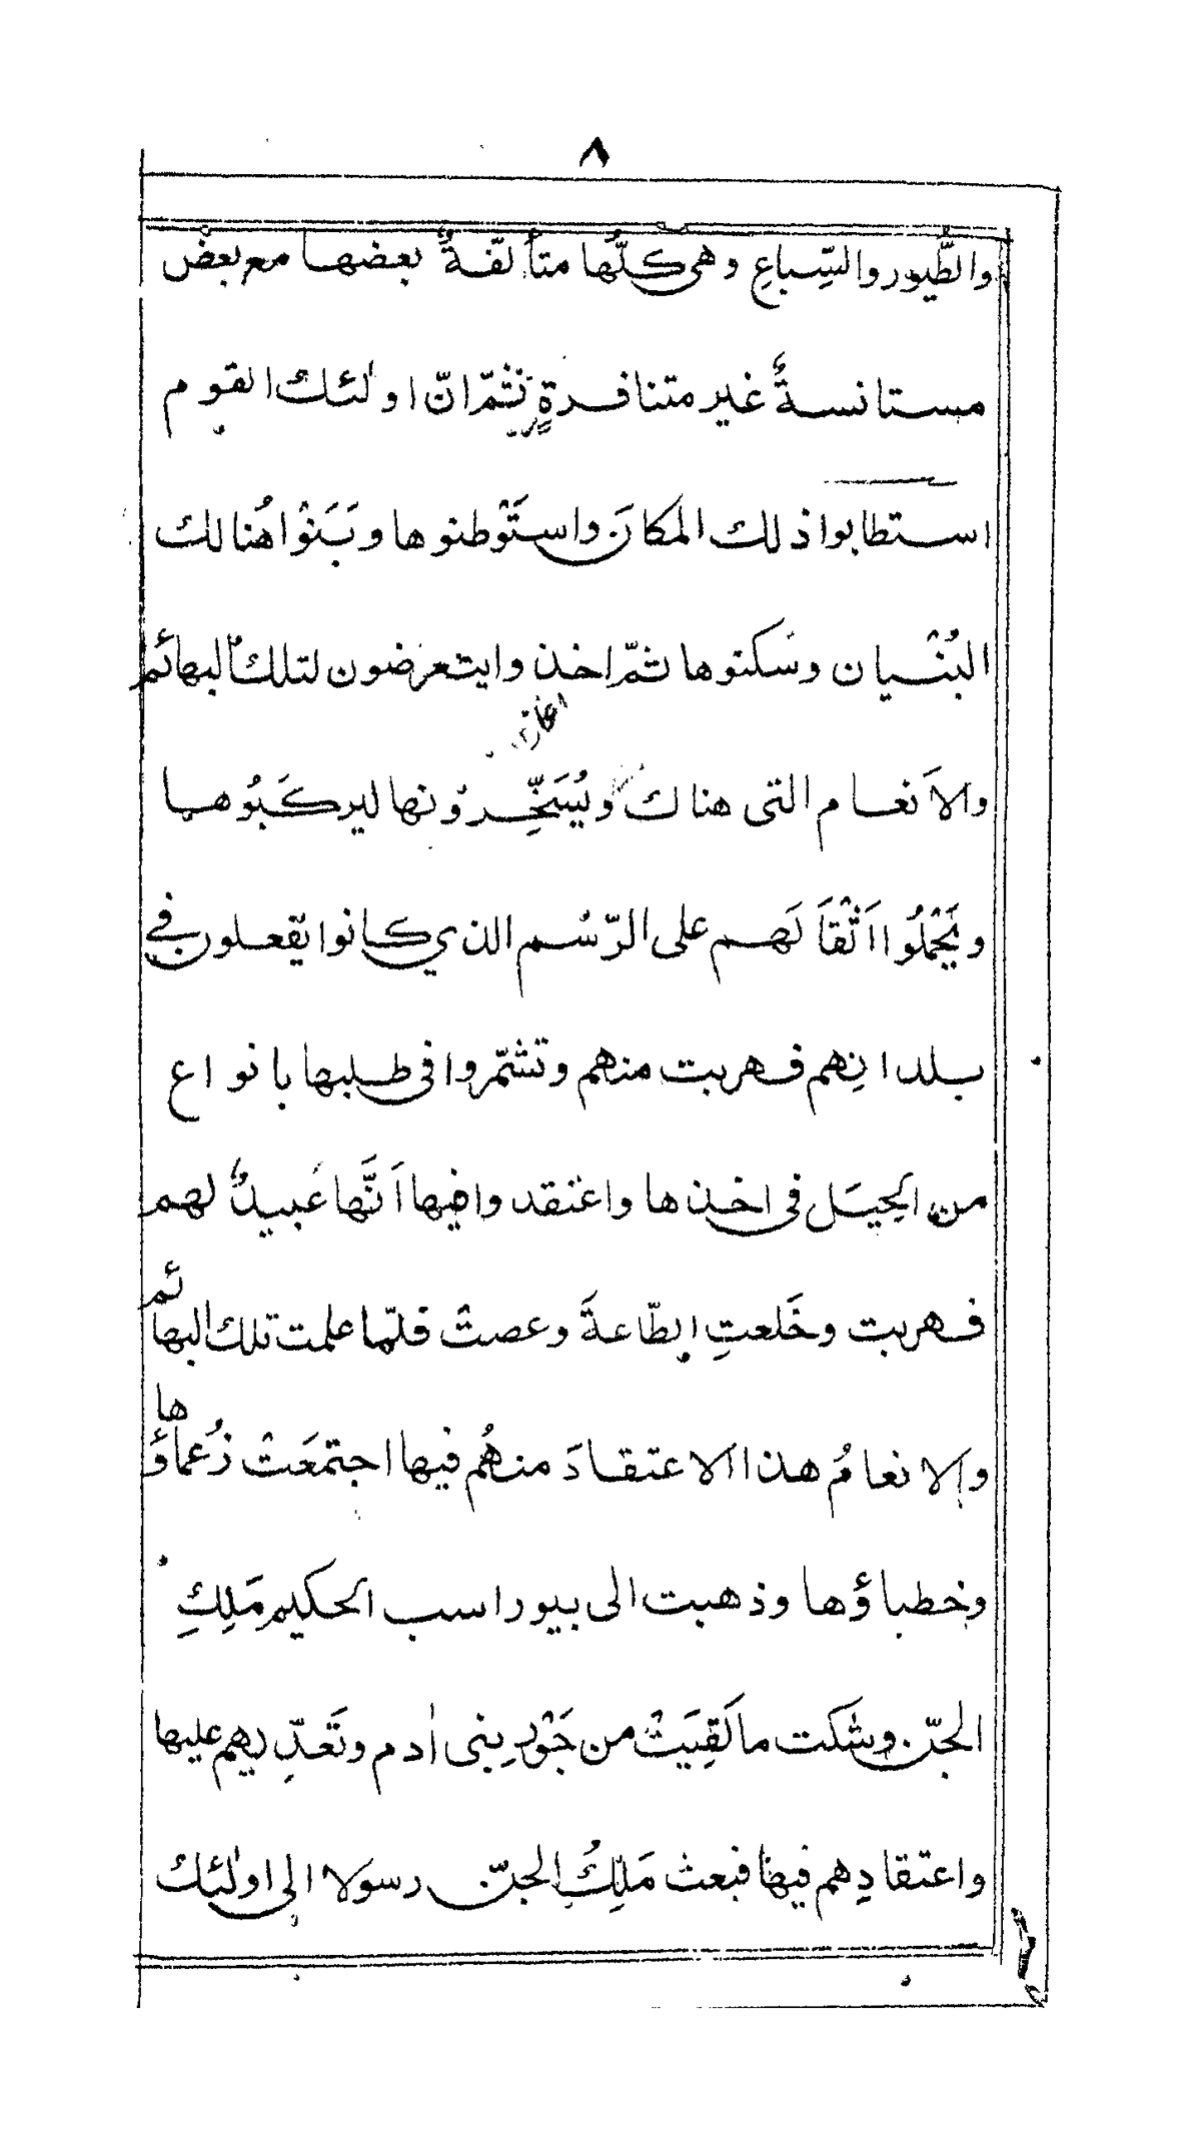 ٨
والطُّيور والسِّباعِ وهى كلُّها متألّفةٌ بعضها مع بعض
مستانسةٌ غير متنافرةٍ ثمّ انّ اولٰئك القوم
استطابوا ذلك المكانَ واستَوْطنوها وبَنَوْا هُنالك
البُنْيان وسَكنوها ثمّ اخذوا يتعرضون لتلك البهائم
والاَنعام التى هناك ويُسَخِّرونها ليركَبُوها
ويَحْمِلُوا اَثْقالَهم على الرّسْم الذي كانوا يَفعلون في
بلدانِهم فهربت منهم وتشمّروا فى طلبها بانواع
من الحِيَل فى اخذها واعتقدوا فيها اَنَّها عَبيدٌ لهم
فهربت وخَلعتِ الطّاعةَ وعصتْ فلمّا علمت تلك البهائم
والانعامُ هذا الاعتقادَ منهُم فيها اجتمَعَتْ زُعماؤُها
وخطباؤها وذهبت الى بيوراسب الحكيم مَلِكِ
الجنّ وشكت ما لَقِيَتْ من جَوْرِ بنى اٰدم وتَعَدِّيهم عليها
واعتقادِهم فيها فبعث مَلِكُ الجنّ رسولا الى اولٰئك